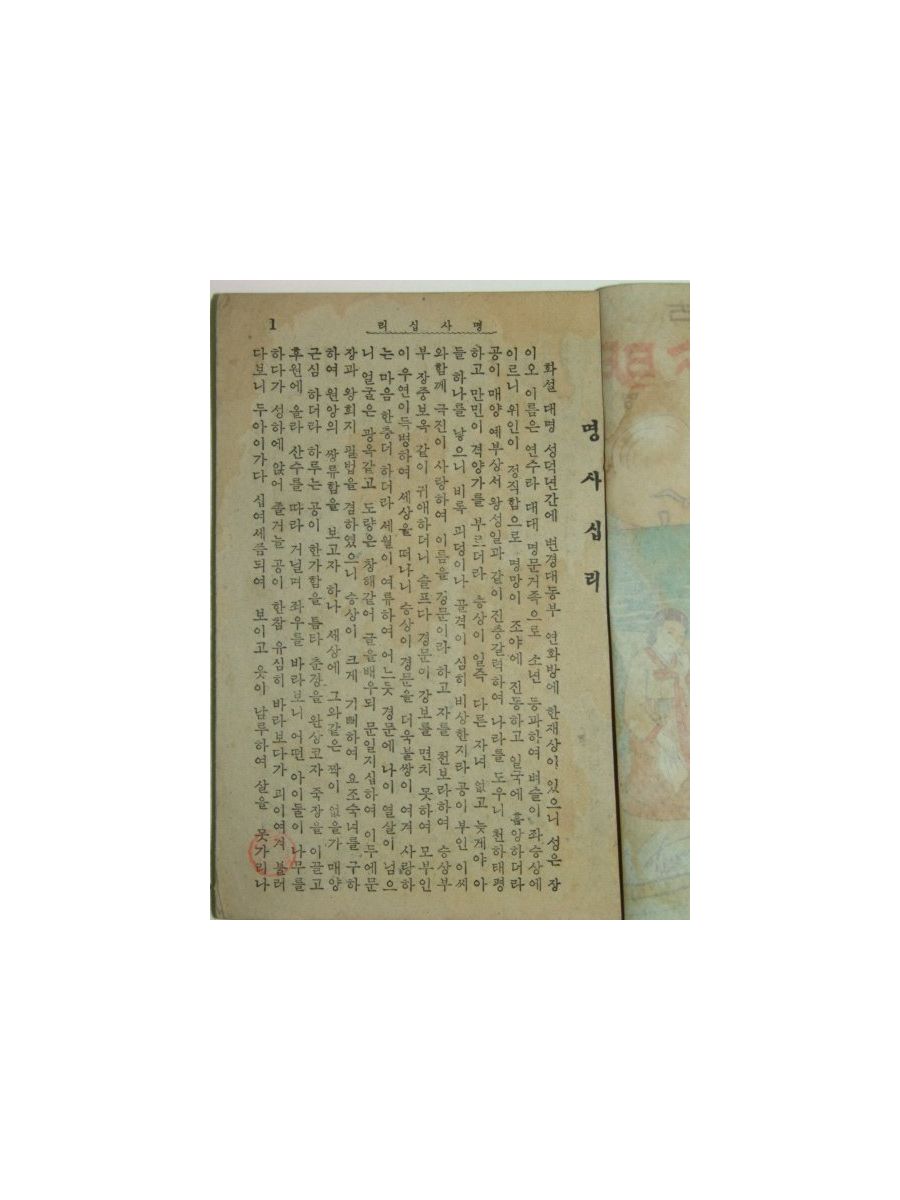 명사십리
1
명사십리
화설 대명 성덕년간에 변경대동부 연화방에 한재상이 있으니 성은 장
이오 이름은 연수라 대대 명문거족으로 소년 등과하여 벼슬이 좌승상에
이르니 위인이 정직함으로 명망이 조야에 진동하고 일국에 흠앙하더라
공이 매양 예부상서 왕성일과 같이 진충갈력하여 나라를 도우니 천하태평
하고 만민이 격양가를 부르더라 승상이 일즉 다른 자녀 없고 늦게야 아
들 하나를 낳으니 비록 피덩이나 골격이 심히 비상한지라 공이 부인 이씨
와함께 극진이 사랑하여 이름을 경문이라 하고 자를 천보라하여 승상부
부 장중보옥 같이 귀애하더니 슬프다 경문이 강보를 면치 못하여 모부인
이 우연이득병하여 세상을 떠나니 승상이 경문을 더욱불쌍이 여겨 사랑하
는 마음 한층더 하더라 세월이 여류하여 어느듯 경문에 나이 열살이 넘으
니 얼굴은 관옥같고 도량은 창해같어 글을배우되 문일지십하여 이두에문
장과 왕희지 필법을 겸하였으니 승상이 크게 기뻐하여 요조숙녀를 구하
하여 원앙의 쌍류함을 보고자 하나 세상에 그와같은 짝이 없을가 매양
근심 하더라 하루는 공이 한가함을 틈타 춘경을 완상코자 죽장을 이끌고
후원에 올라 산수를 따라 거닐며 좌우를 바라보니 어떤 아이둘이 나무를
하다가 성하에 앉어 졸거늘 공이 한참 유심히 바라보다가 괴이여겨 불러
다보니 두아이가다 십여세즘되여 보이고 옷이 남루하여 살을 못가리나